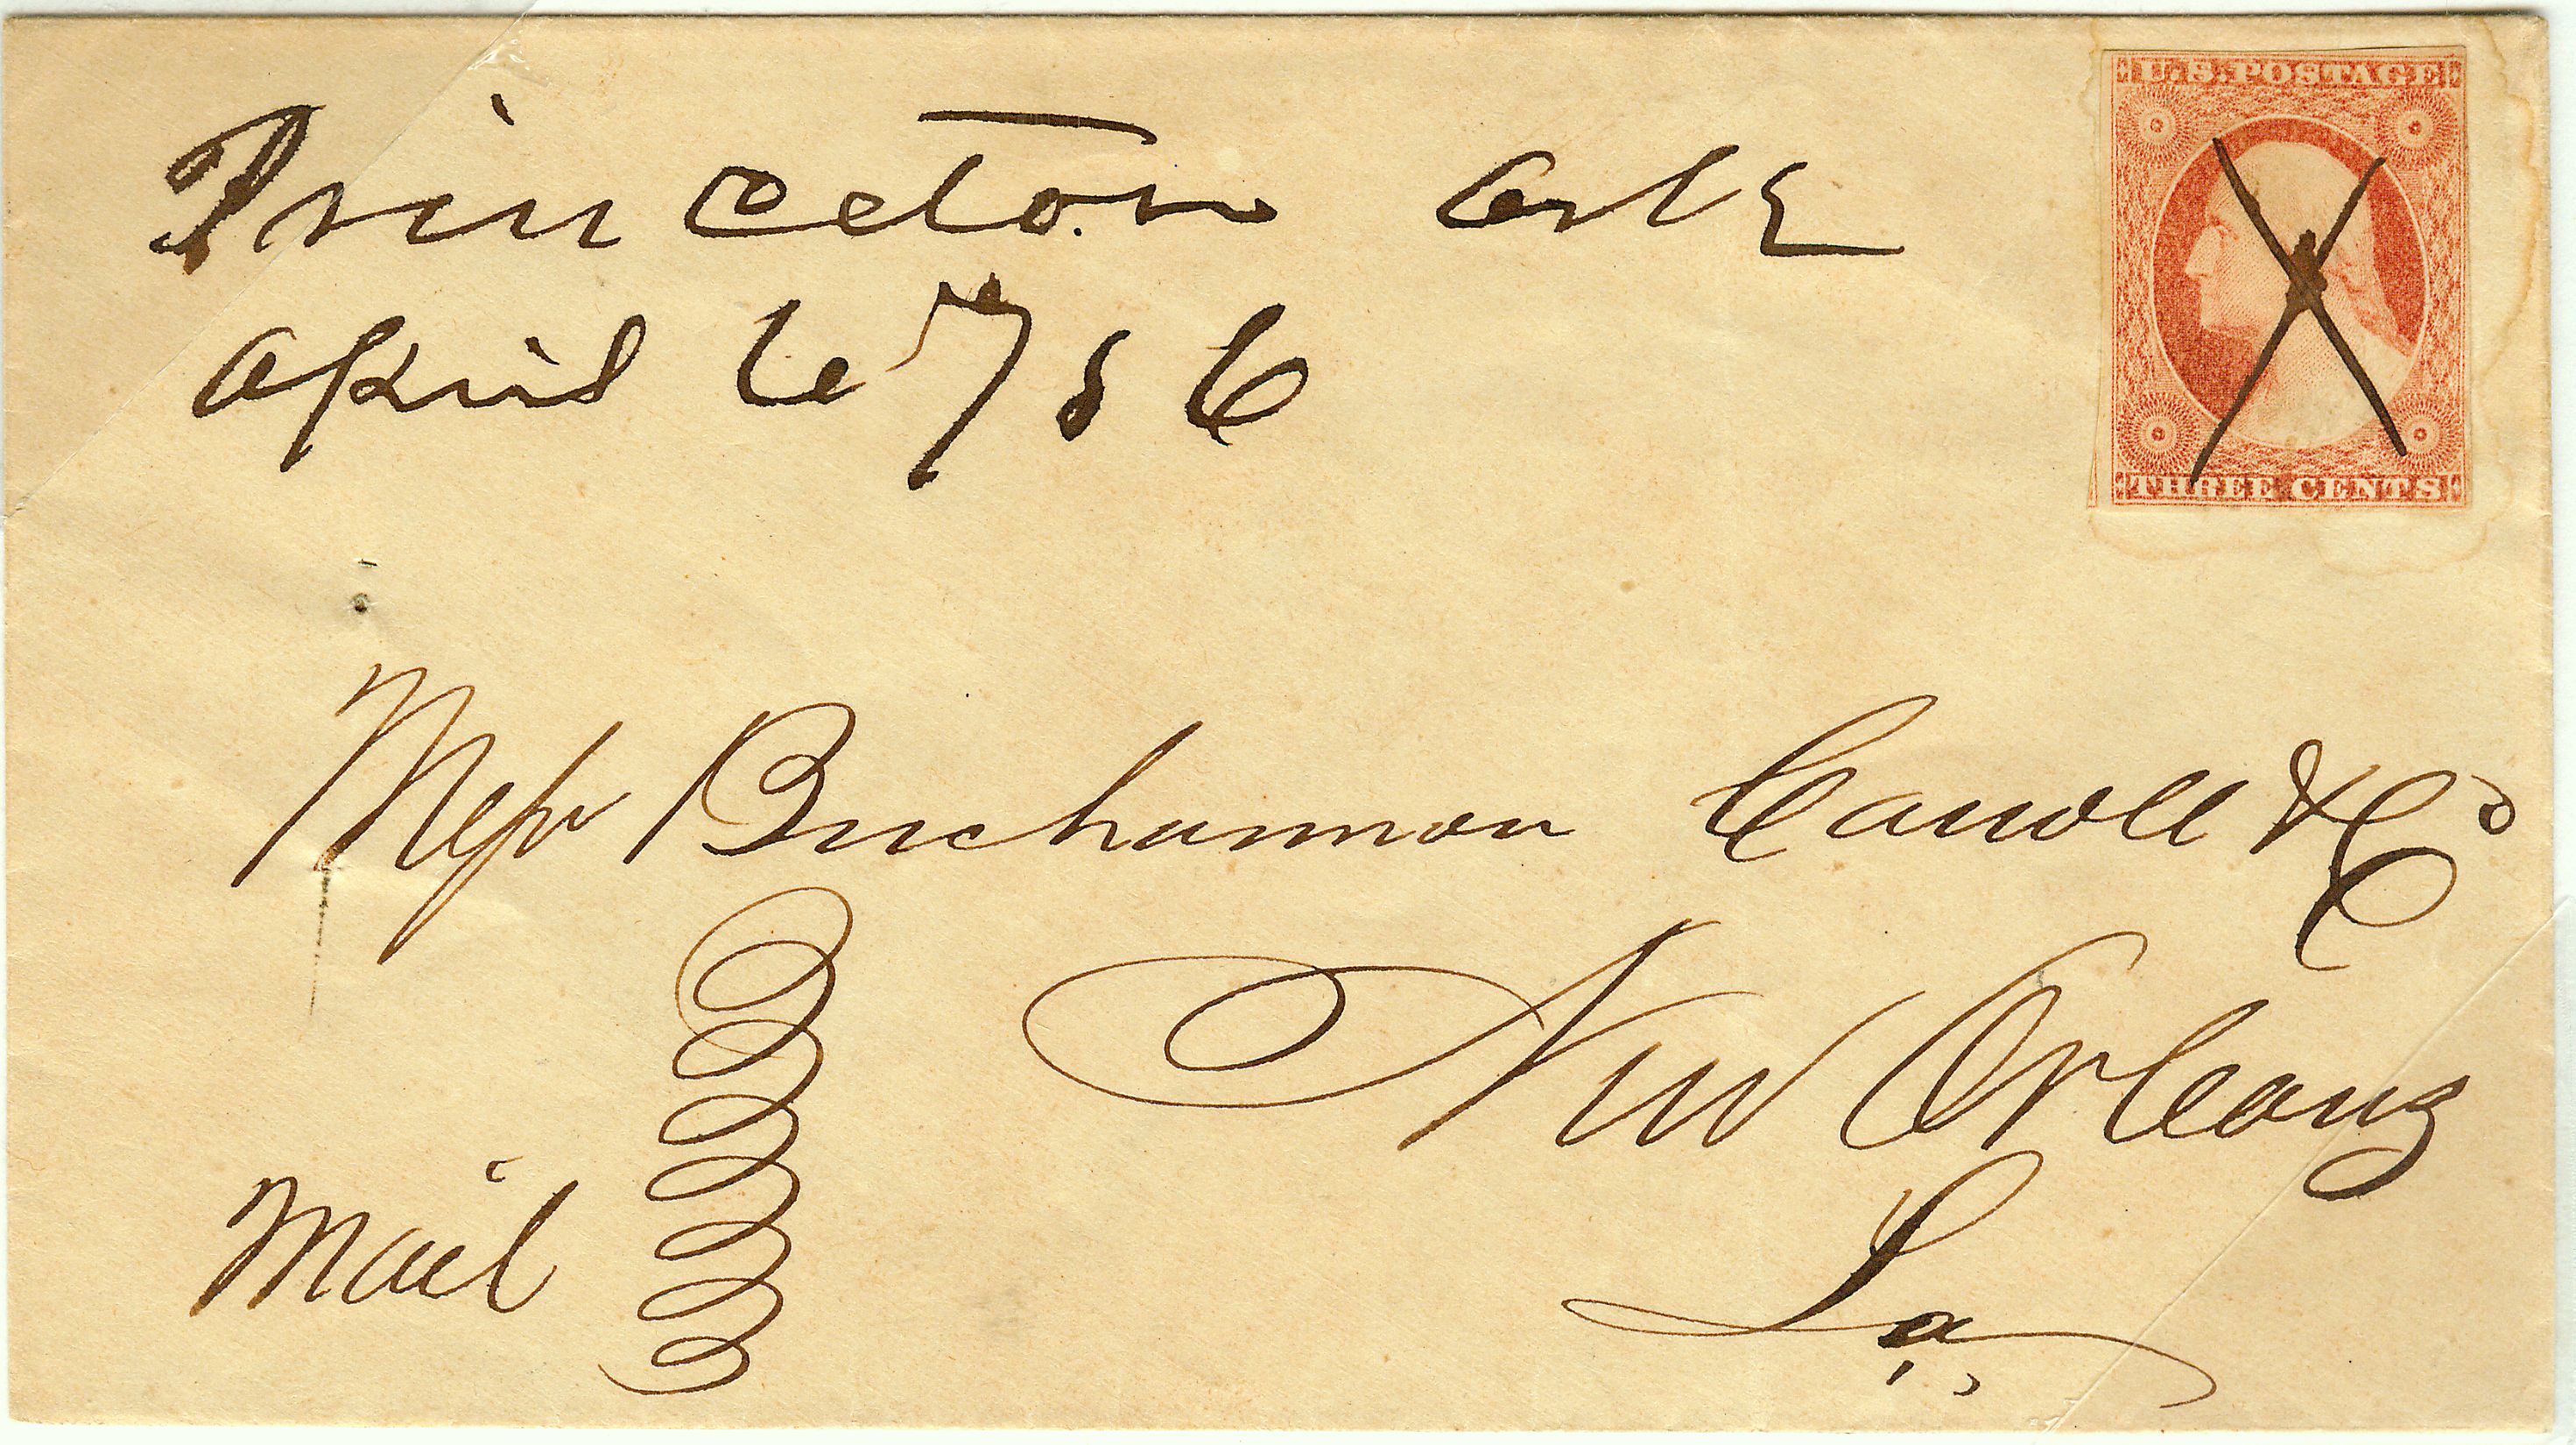 Princeton Ark
April 6 /56
U.S. POSTAGE
THREE CENTS
Messrs Buchannon Carroll & Co
New Orleans
Mail
La,